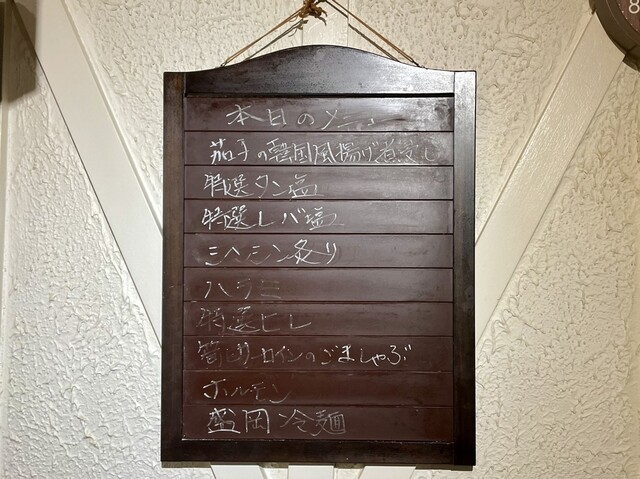 本日のメニュー
茄子の韓国風揚げ煮浸し
特選タン塩
特選レバ塩
ミスジ炙り
ハラミ
特選ヒレ
サーロインのごましゃぶ
ホルモン
盛岡冷麺
8